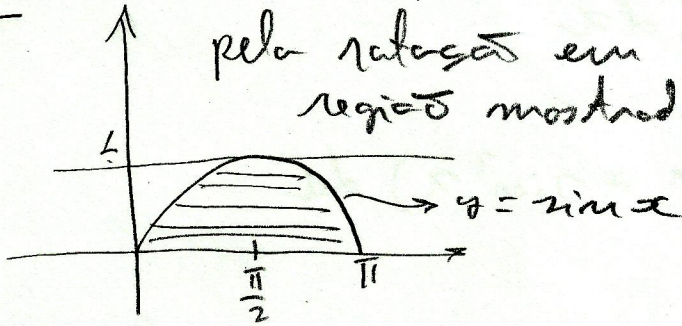 pela rotação em
região mostrad
1
y = sin x
π/2
π